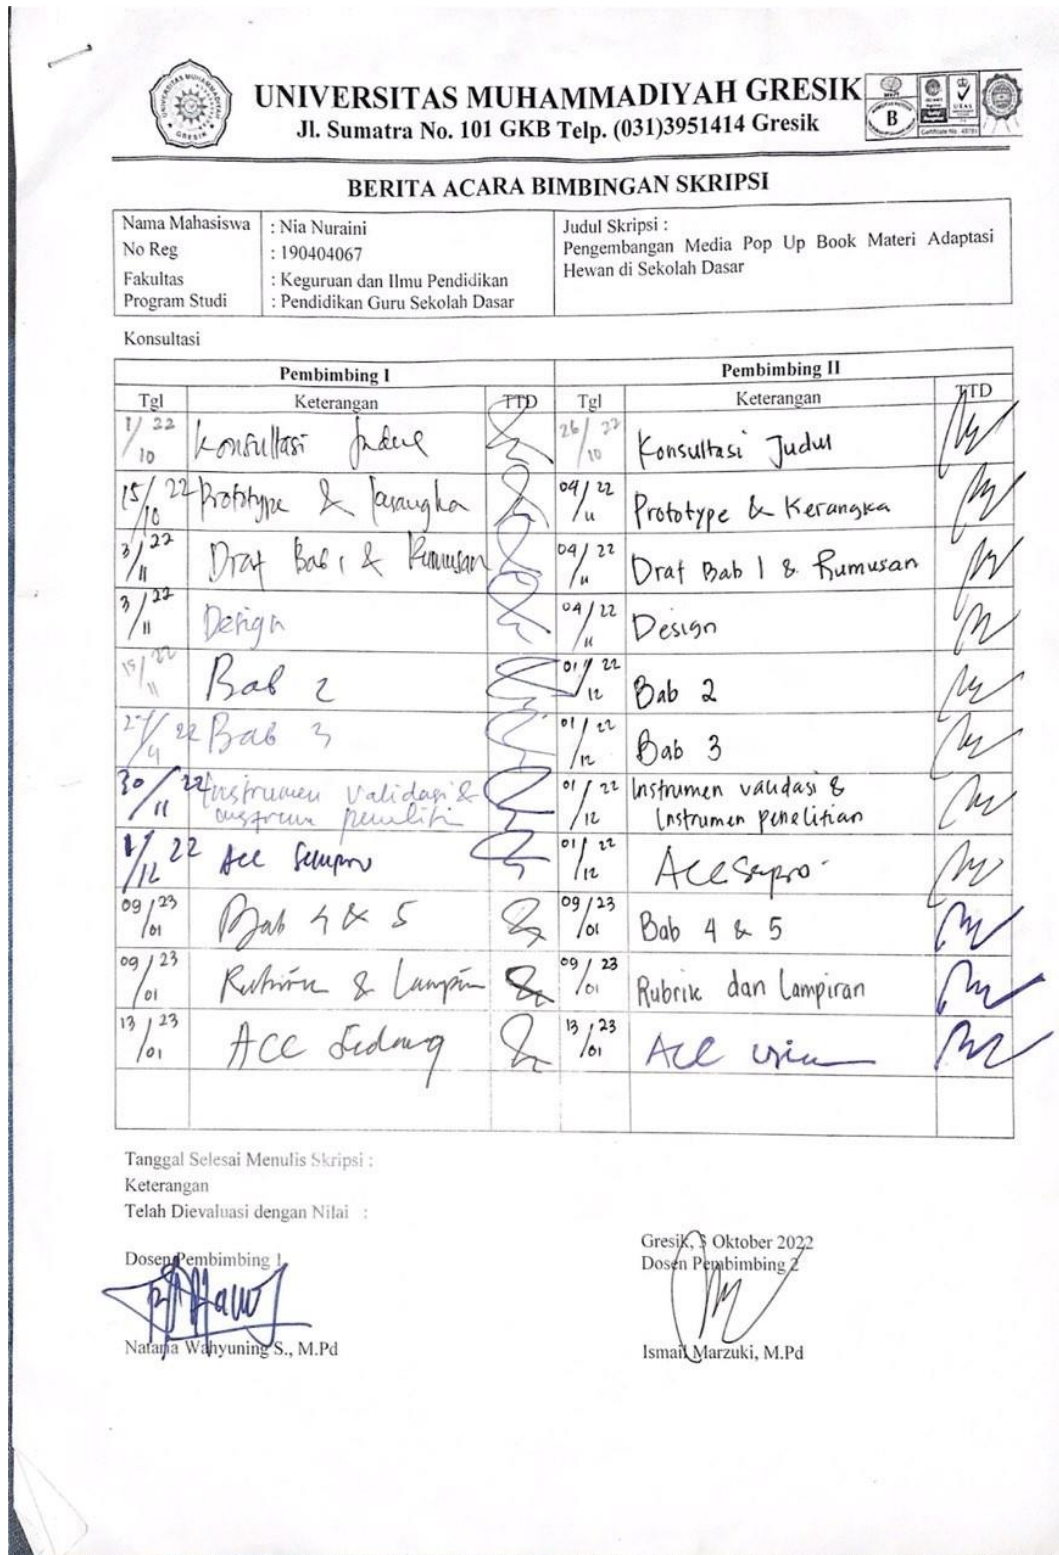 UNIVERSITAS MUHAMMADIYAH GRESIK
Jl. Sumatra No. 101 GKB Telp. (031)3951414 Gresik
BERITA ACARA BIMBINGAN SKRIPSI
Nama Mahasiswa : Nia Nuraini
No Reg : 190404067
Fakultas : Keguruan dan Ilmu Pendidikan
Program Studi : Pendidikan Guru Sekolah Dasar
Judul Skripsi :
Pengembangan Media Pop Up Book Materi Adaptasi
Hewan di Sekolah Dasar
Konsultasi
Pembimbing I Pembimbing II
Tgl Keterangan TTD Tgl Keterangan TTD
1/10 22 Konsultasi Judul 26/10 22 Konsultasi Judul
15/10 22 Prototype & 04/11 22 Prototype & Kerangka
3/11 22 Draf Bab 1 & Rumusan 04/11 22 Draf Bab 1 & Rumusan
3/11 22 Design 04/11 22 Design
15/11 22 Bab 2 01/12 22 Bab 2
22 Bab 3 01/12 22 Bab 3
30/11 22 Instrumen validasi & 01/12 22 Instrumen validasi &
Instrumen penelitian
1/12 22 Acc Sempro 01/12 22 Acc Sempro
09/01 23 Bab 4 & 5 09/01 23 Bab 4 & 5
09/01 23 & 09/01 23 Rubrik dan Lampiran
13/01 23 ACC Sidang 13/01 23 ACC
Tanggal Selesai Menulis Skripsi :
Keterangan
Telah Dievaluasi dengan Nilai :
Gresik, Oktober 2022
Dosen Pembimbing 1 Dosen Pembimbing 2
Wahyuning S., M.Pd Ismail Marzuki, M.Pd